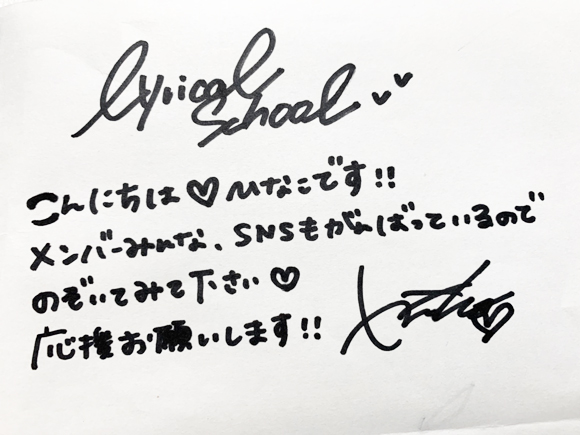 lyrical
school
こんにちは♡ひなこです!!
メンバーみんな、SNSもがんばっているので
のぞいてみて下さい♡
応援お願いします!!